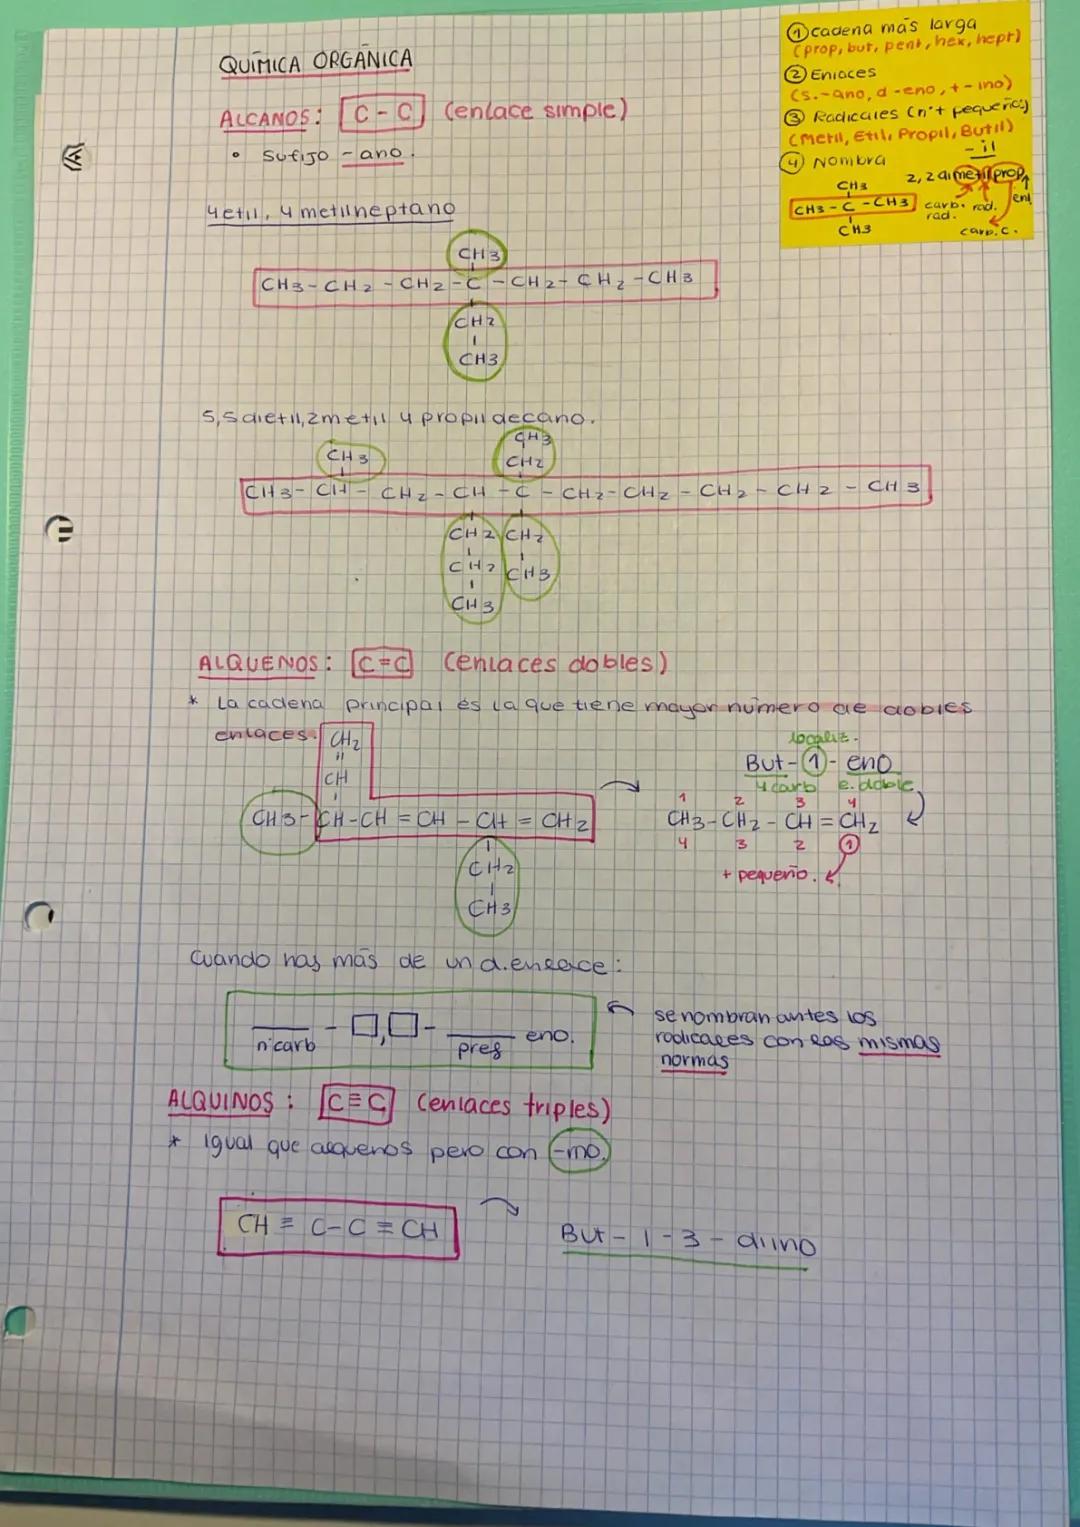 QUÍMICA ORGÁNICA
ALCANOS: C - C (enlace simple)
• sufijo -ano.
4etil, 4metilheptano
CH3
CH3 - CH2 - CH2 - C - CH2 - CH2 - CH3
CH2
CH3
5,5dietil,2metil 4propildecano.
CH3
CH3 CH2
CH3 - CH - CH2 - CH - C - CH2 - CH2 - CH2 - CH2 - CH3
CH2 CH2
CH2 CH3
CH3
ALQUENOS: C=C (enlaces dobles)
* La cadena principal es la que tiene mayor número de dobles
enlaces.
CH2
"
CH
CH3 - CH - CH = CH - CH = CH2
CH2
CH3
localiz.
But - 1 - eno
4carb e.doble
1 2 3 4
CH3 - CH2 - CH = CH2
4 3 2 1
+ pequeño.
Cuando hay más de un d.enlace:
___ - □,□ - ___ eno.
nºcarb pref
se nombran antes los
radicales con las mismas
normas
ALQUINOS: C≡C (enlaces triples)
* Igual que alquenos pero con -ino.
CH ≡ C - C ≡ CH
But - 1 - 3 - diino
① cadena más larga
(prop, but, pent, hex, hept)
② Enlaces
(s.-ano, d -eno, t - ino)
③ Radicales (nº+ pequeño)
(Metil, Etil, Propil, Butil)
- il
④ Nombra
2, 2 dimetilprop
CH3
CH3 - C - CH3
CH3
carb. rad.
rad.
enl
carb. C.